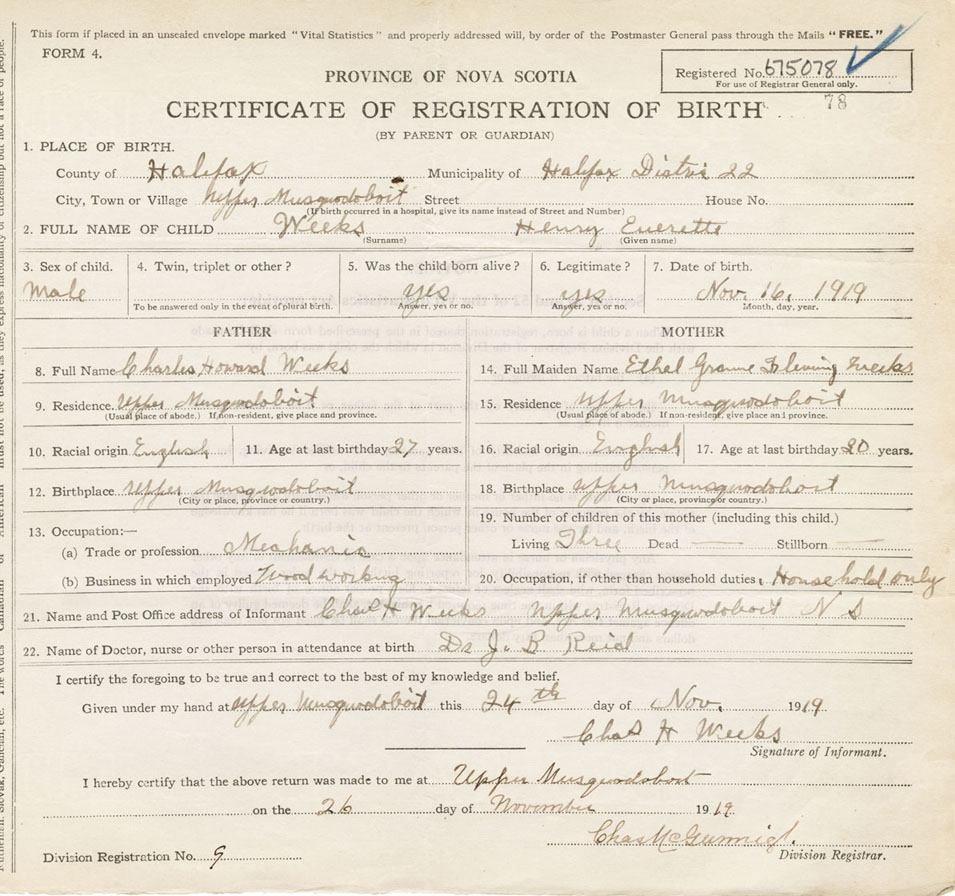 This form if placed in an unsealed envelope marked "Vital Statistics" and properly addressed will, by order of the Postmaster General pass through the Mails "FREE."
FORM 4.
Registered No. 675078
For use of Registrar General only.
78
PROVINCE OF NOVA SCOTIA
CERTIFICATE OF REGISTRATION OF BIRTH
(BY PARENT OR GUARDIAN)
1. PLACE OF BIRTH.
County of Halifax Municipality of Halifax Distri 22
City, Town or Village Upper Musquodoboit Street House No.
(If birth occurred in a hospital, give its name instead of Street and Number)
2. FULL NAME OF CHILD Weeks Henry Everette
(Surname) (Given name)
3. Sex of child. 4. Twin, triplet or other? 5. Was the child born alive? 6. Legitimate? 7. Date of birth.
Male yes yes Nov. 16, 1919
To be answered only in the event of plural birth. Answer, yes or no. Answer, yes or no. Month, day, year.
FATHER MOTHER
8. Full Name Charles Howard Weeks
14. Full Maiden Name Ethel Fleming Weeks
9. Residence Upper Musquodoboit
(Usual place of abode.) If non-resident, give place and province.
15. Residence Upper Musquodoboit
(Usual place of abode.) If non-resident, give place and province.
10. Racial origin English 11. Age at last birthday 27 years.
16. Racial origin English 17. Age at last birthday 20 years.
12. Birthplace Upper Musquodoboit
(City or place, province or country.)
18. Birthplace Upper Musquodoboit
(City or place, province or country.)
13. Occupation:—
(a) Trade or profession Mechanic
(b) Business in which employed Wood working
19. Number of children of this mother (including this child.)
Living Three Dead — Stillborn —
20. Occupation, if other than household duties, Household only
21. Name and Post Office address of Informant Chas H Weeks Upper Musquodoboit N S
22. Name of Doctor, nurse or other person in attendance at birth Dr J. B Reid
I certify the foregoing to be true and correct to the best of my knowledge and belief.
Given under my hand at Upper Musquodoboit this 24th day of Nov. 1919
Chas H Weeks
Signature of Informant.
I hereby certify that the above return was made to me at Upper Musquodoboit
on the 26 day of November 1919
Chas
Division Registrar.
Division Registration No. 9